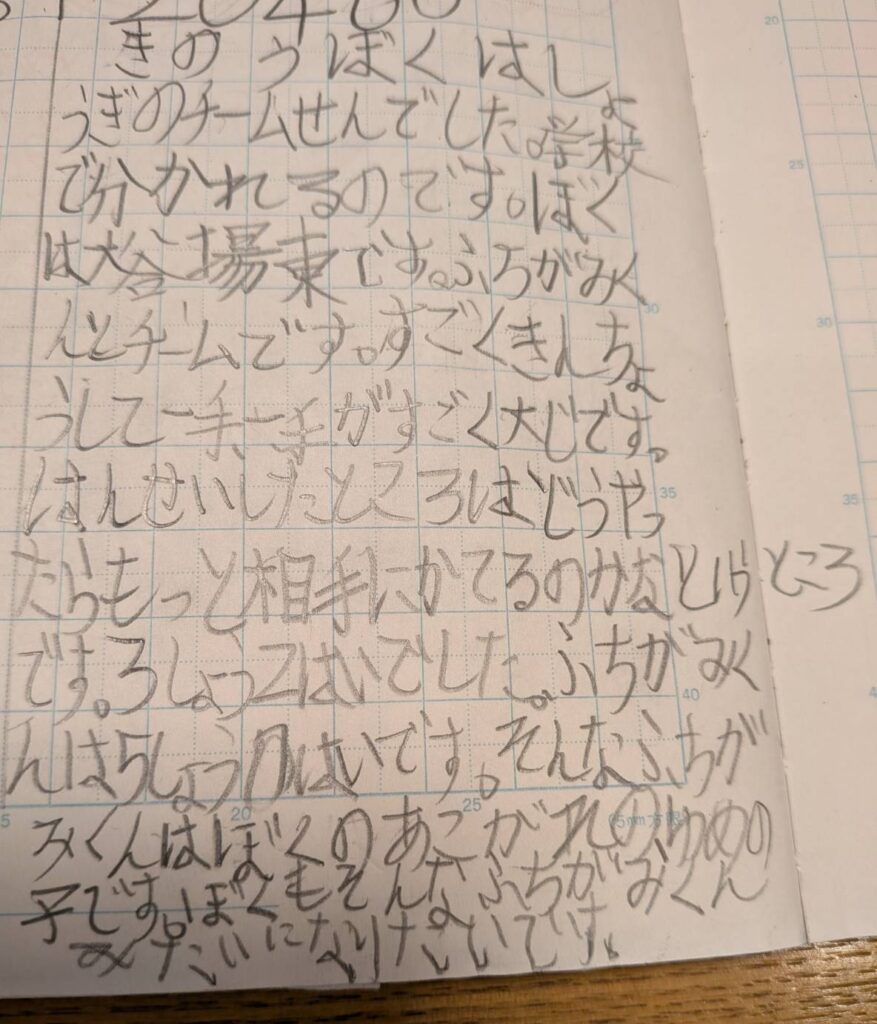 きのうぼくはしょ
うぎのチームせんでした。学校
で分かれてるのです。ぼく
は大谷場東です。ふちがみく
んとチームです。すごくきんちょ
うして一手一手がすごく大じです。
はんせいしたところはどうやっ
たらもっと相手にかてるのかなというところ
です。3しょう2はいでした。ふちがみく
んは5しょう0はいです。そんなふちが
みくんはぼくのあこがれのゆめの
子です。ぼくもそんなふちがみくん
みたいになりたいです。
20
25
30
35
40
20
25
30
35